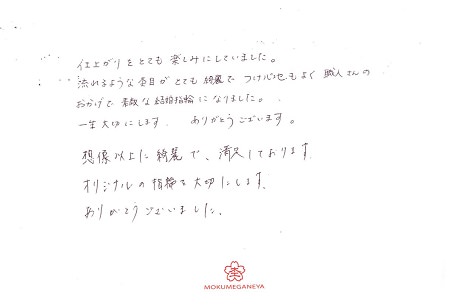 仕上がりをとても楽しみにしていました。
流れるような杢目がとても綺麗でつけ心地もよく職人さんの
おかげで素敵な結婚指輪になりました。
一生大切にします。 ありがとうございます。
想像以上に綺麗で、満足しております。
オリジナルの指輪を大切にします。
ありがとうございました。
MOKUMEGANEYA